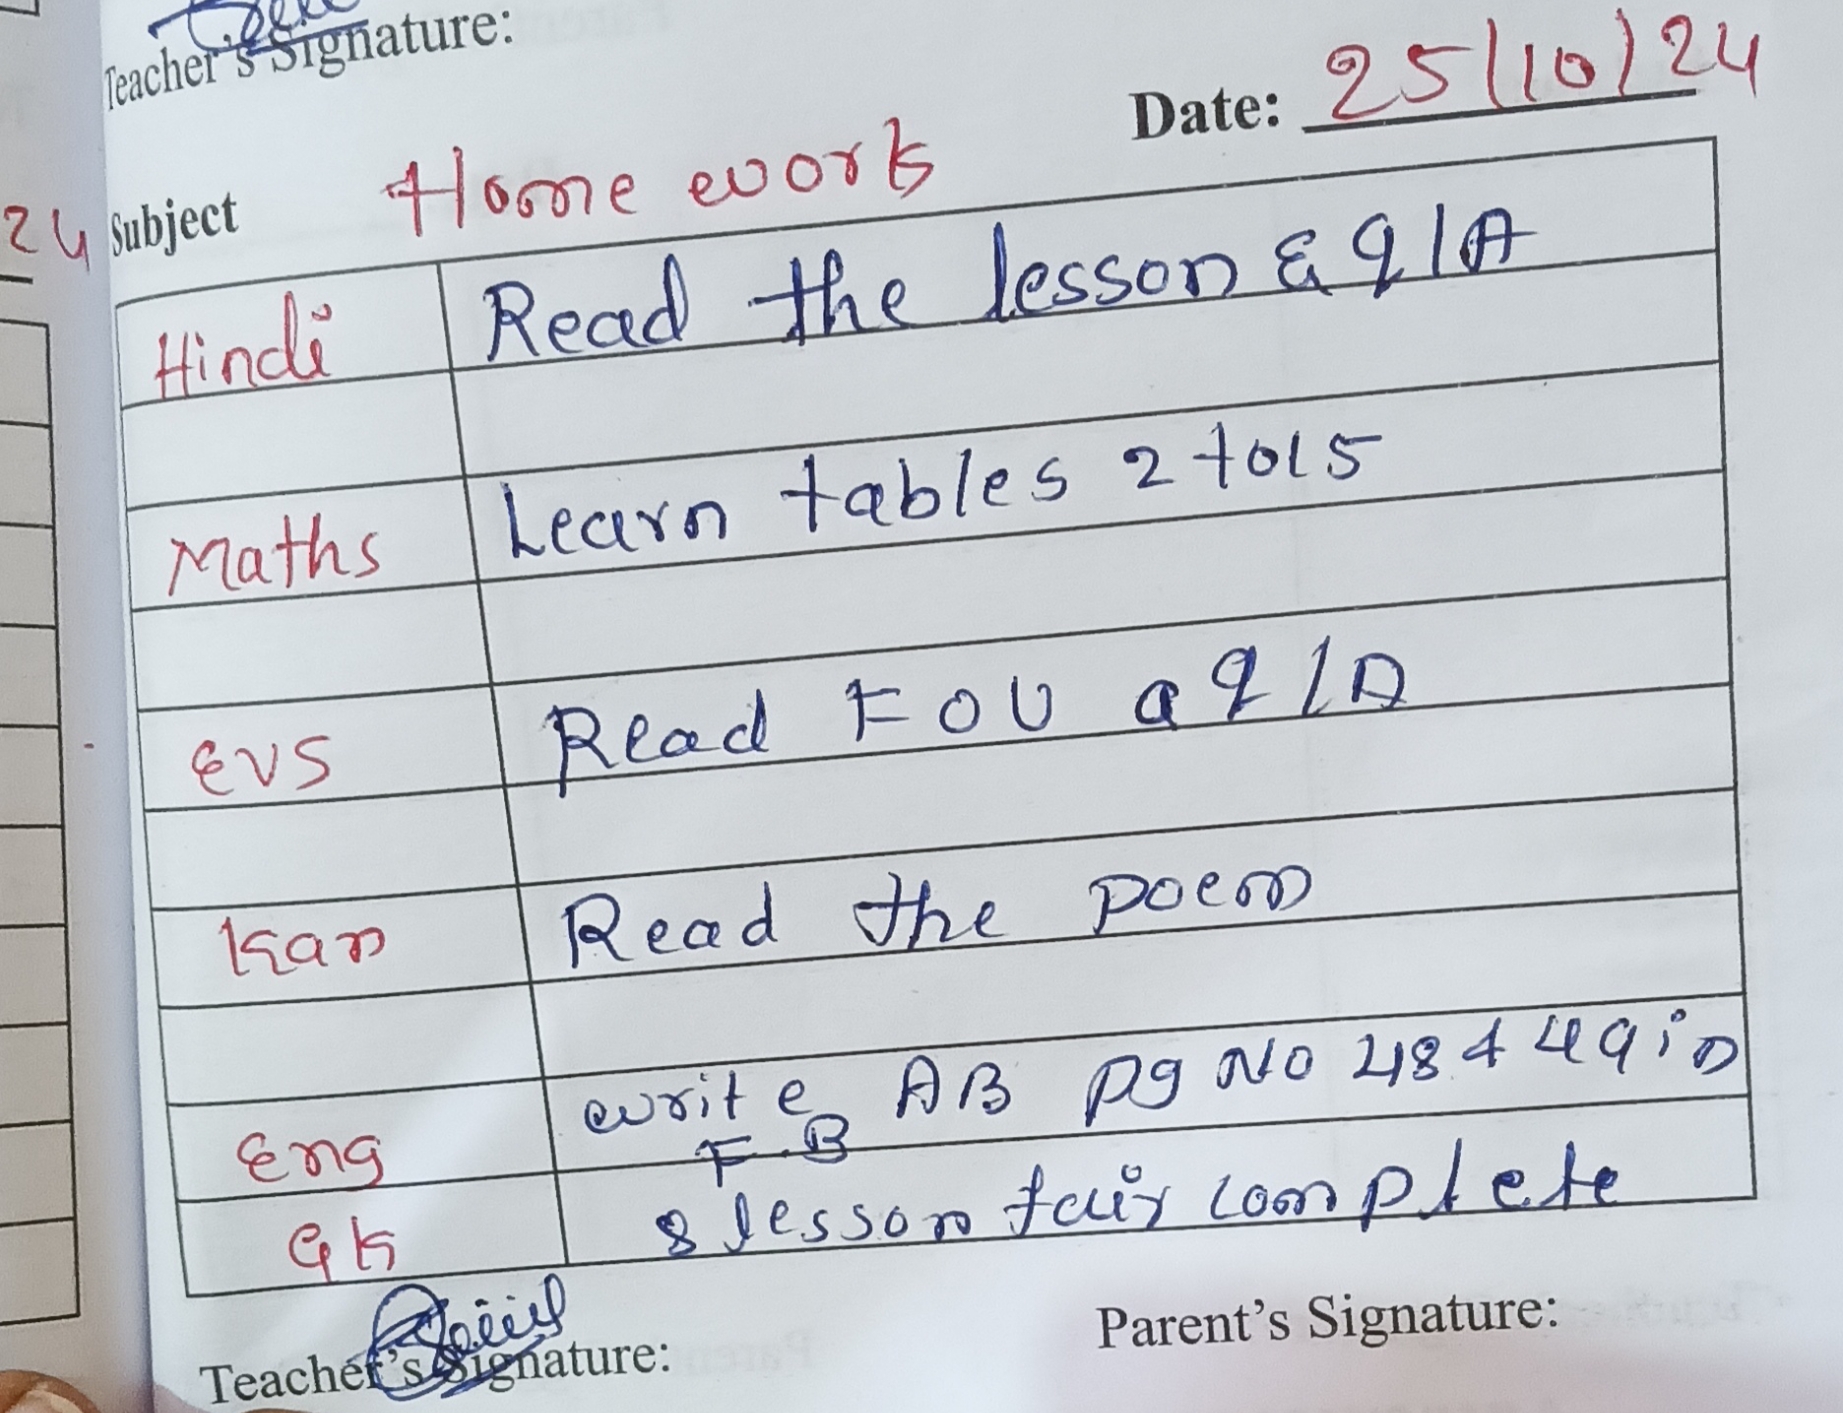 Teacher's Signature:
Date: 25/10/24
24 Subject Home work
Hindi Read the lesson & Q/A
Maths Learn tables 2 to 15
EVS Read FOU a Q/A
Kan Read the poem
Eng write AB pg No 48 & 49 in
F.B
GK 8 lesson fair complete
Teacher's Signature:
Parent's Signature: